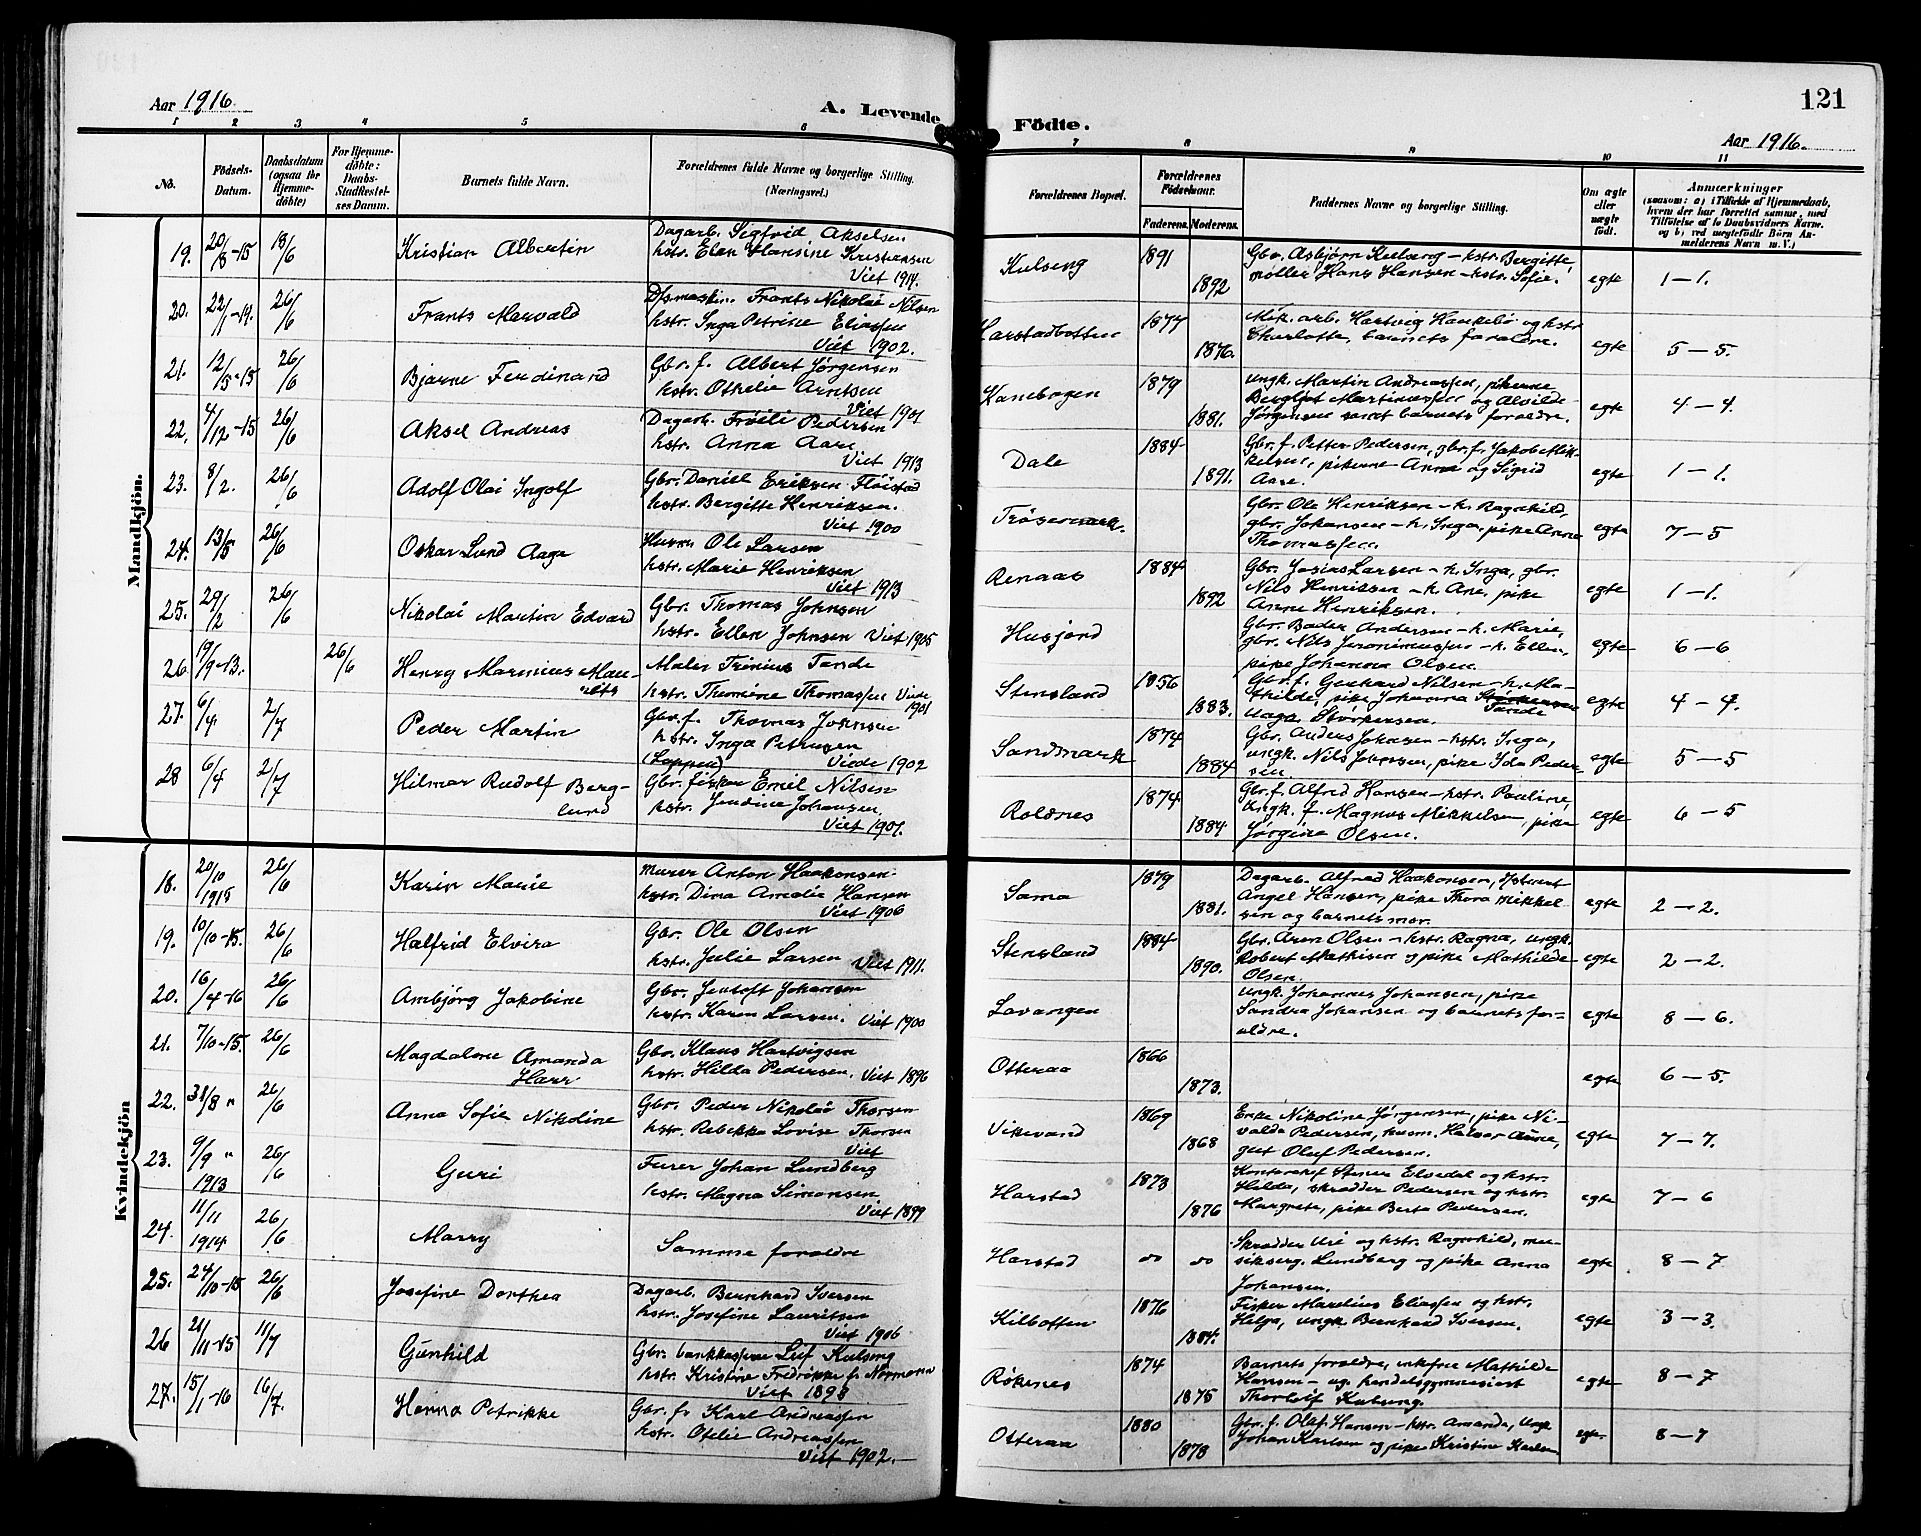 Aar 1916.
A. Levende
1 2 3 4 5 6
No.
Födsels-
Datum.
Daabsdatum
(ogsaa for
Hjemme-
döbte)
For Hjemme-
döbte:
Daabs-
Stadfæstel-
ses Datum.
Barnets fulde Navn.
Forældrenes fulde Navne og borgerlige Stilling.
(Næringsvei.)
Mandkjön.
19. 20/8-15 18/6 Kristian Albertin
Dagarb. Sigfrid Akselsen
hstr. Elen Hansine Kristiansen
Viet 1914.
20. 22/1-14. 26/6 Frants Marvald
Frants Nikolai Nilsen
hstr. Inga Petrine Eliassen
Viet 1902.
21. 12/5-15 26/6 Bjarne Ferdinand
Gbr. f. Albert Jørgensen
hstr. Othelie Arntsen
Viet 1901
22. 4/12-15 26/6 Aksel Andreas
Dagarb. Pedersen
hstr. Anna Aare
Viet 1913
23. 8/2. 26/6 Adolf Olai Ingolf
Gbr. Daniel Eriksen Fløistad
hstr. Bergitte Henriksen.
Viet 1900
24. 13/5 26/6 Oskar Lund Aage
Husm. Ole Larsen
hstr. Marie Henriksen
Viet 1913
25. 29/2 26/6 Nikolai Martin Edvard
Gbr. Thomas Johnsen
hstr. Ellen Johnsen Viet 1905
26. 19/9-13. 26/6 Henry Marinius Mau-
ritz
Maler Trinius Tande
hstr. Thomassen Viede
1901
27. 6/4 2/7 Peder Martin
Gbr. f. Thomas Johnsen
hstr. Inga Petersen
(Lapper) Viede 1902
28 6/4 2/7 Hilmar Rudolf Berg-
lund
Gbr. fisker Emil Nilsen
hstr. Jendine Johansen
Viet 1901.
Kvindekjön
18. 20/10 1915 26/6 Karin Marie
Murer Anton Haakonsen
hstr. Dina Amalie Hansen
Viet 1906
19. 10/10-15. 26/6 Halfrid Elvira
Gbr. Ole Olsen
hstr. Julie Larsen Viet 1911.
20. 16/4-16 26/6 Ambjørg Jakobine
Gbr. Jentoft Johansen
hstr. Karen Larsen. Viet 1900
21. 7/10-15. 26/6 Magdalone Amanda
Harr
Gbr. Klaus Hartvigsen
hstr. Hilda Pedersen. Viet 1896
22. 31/8 " 26/6 Anna Sofie Nikoline
Gbr. Peder Nikolai Thorsen
hstr. Rebekka Lovise Thorsen
Viet
23. 9/9 " 1913 26/6 Guri
Furer Johan Lundberg
hstr. Magna Simonsen
Viet 1899
24. 11/11 1914 26/6 Marry
Samme foreldre
25. 24/10-15 26/6 Josefine Dorthea
Dagarb. Bernhard Iversen
hstr. Josefine Lauritsen
Viet 1906
26 21/11-15 11/7 Gunhild
Gbr. bankkasserer Leif Kulseng
hstr. Kristine Fredrikke f. Normann
Viet 1898
27. 15/1-16 16/7. Hanna Petrikke
Gbr. f. Karl Andreassen
hstr. Ofelie Andreassen
Viet 1902.
121
Födte.
Aar 1916.
7 8 9 10 11
Forældrenes Bopæl.
Forældrenes
Födselsaar.
Faderens. Moderens.
Faddernes Navne og borgerlige Stilling.
Om ægte
eller
uægte
født.
Anmærkninger
(saasom: a) i Tilfælde af Hjemmedaab,
hvem der har forrettet samme, med
Tilföielse af to Daabsvidners Navne.
og b) ved uægtefödte Börn An-
melderens Navn m. V.)
Kulseng 1891 1892
Gbr. Asbjørn Kulseng - hstr. Bergitte
møller Hans Hansen - hstr. Sofie.
egte 1-1.
Harstadbotten 1877 1876.
Mek. arb. Hartvig Hankebø og hstr
Charlotte, barnets foreldre.
egte 5-5.
Kanebogen 1879 1881.
ungk. Martin Andreassen, pikerne
Bergljot Martinussen og Alvilde
Jørgensen samt barnets foreldre.
egte 4-4.
Dale 1884 1891.
Gbr. f. Petter Pedersen, gbr. f. Jakob Mik-
kelsen, pikerne Anna og Sigrid
Aare.
egte 1-1.
Trøsemark.
Gbr. Ole Henriksen - h. Ragnhild,
gbr. Johansen - h. Inga, pike Anne
Thomassen.
egte 7-5
Renaas 1884 1892
Gbr. Josias Larsen - h. Inga, gbr.
Nils Henriksen - h. Ane, pike
Anne Henriksen.
egte 1-1.
Husjord
Gbr. Bader Andersen - h. Marie,
gbr. Nils Jeronimussen - h. Ellen,
pike Johanna Olsen.
egte 6-6
Stensland 1856 1883.
Gbr. f. Gerhard Nilsen - h. Ma-
thilde, pike Johanna
Tande
Storkersen.
egte 4-4.
Sandmark 1874 1884
Gbr. Anders Johnsen - hstr. Inga,
ungk. Nils Johnsen, pike Ida Peder-
sen.
egte 5-5
Roldnes 1874 1884.
Gbr. f. Alfred Hansen - hstr. Pauline,
Ungk. f. Magnus Mikkelsen, pike
Jørgine Olsen.
egte 6-5
Sama 1879 1881.
Dagarb. Alfred Haakonsen,
Angel Hansen, pike Thora Mikkel-
sen og barnets mor.
egte 2-2.
Stensland 1884 1890.
Gbr. Aron Olsen - hstr. Ragna, ungk.
Robert Mathisen og pike Mathilde
Olsen.
egte 2-2.
Lavangen
ungk. Johannes Johansen, pike
Sandra Johansen og barnets for-
eldre.
egte 8-6.
Otteraa 1866 1873. egte 6-5.
Vikevand 1869 1868
Enke Nikoline Jørgensen, pike Ni-
valda Pedersen, husm. Halvor Arne,
gut Oluf Pedersen.
egte 7-7.
Harstad 1873 1876
Kontorchef Steinar Elvedal og hstr.
Hilda, skrædder Pedersen og hstr.
Margrete, pike Berta Pedersen.
egte 7-6
Harstad do do
Skrædder Uri og hstr. Ragnhild, mu-
sikserg. Lundberg og pike Anna
Johansen.
egte 8-7
Kilbotten 1876 1884.
Fisker Marelius Eliassen og hstr.
Helga, ungk Bernhard Iversen.
egte 3-3.
Røkenes 1874 1875
Barnets foreldre, enkefru Mathilde
Hansen - og handelsgymnasiast
Thorleif Kulseng.
egte 8-7
Otteraa 1880 1878
Gbr. f. Olaf Hansen - hstr. Amanda, ungk
Johan Karlsen og pike Kristine Karlsen
egte 8-7